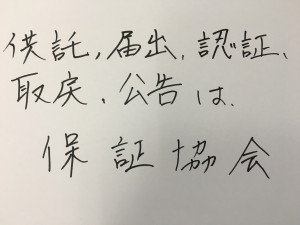 供託,届出,認証、
取戻、公告は、
保証協会